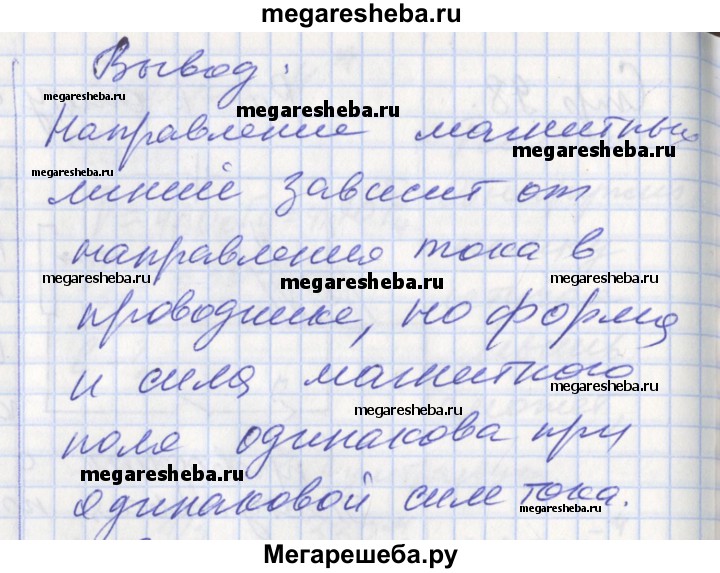 megaresheba.ru
Вывод:
megaresheba.ru
megaresheba.ru
Направление магнитных
megaresheba.ru
megaresheba.ru
линий зависит от
направления тока в
megaresheba.ru
megaresheba.ru
megaresheba.ru
проводнике, но форма
и сила магнитного
megaresheba.ru
megaresheba.ru
поля одинакова при
megaresheba.ru
одинаковой силе тока.
megaresheba.ru
Мегарешеба.ру